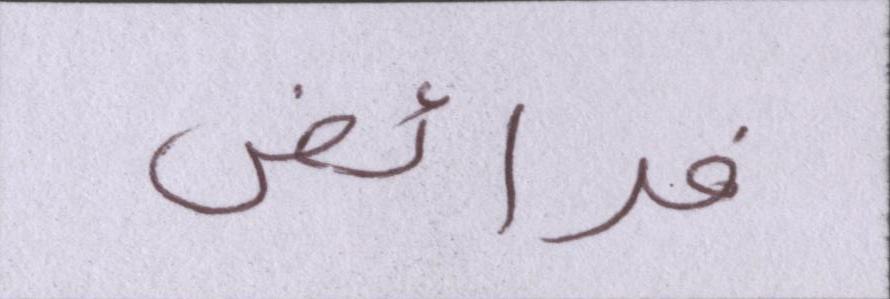 فرائض